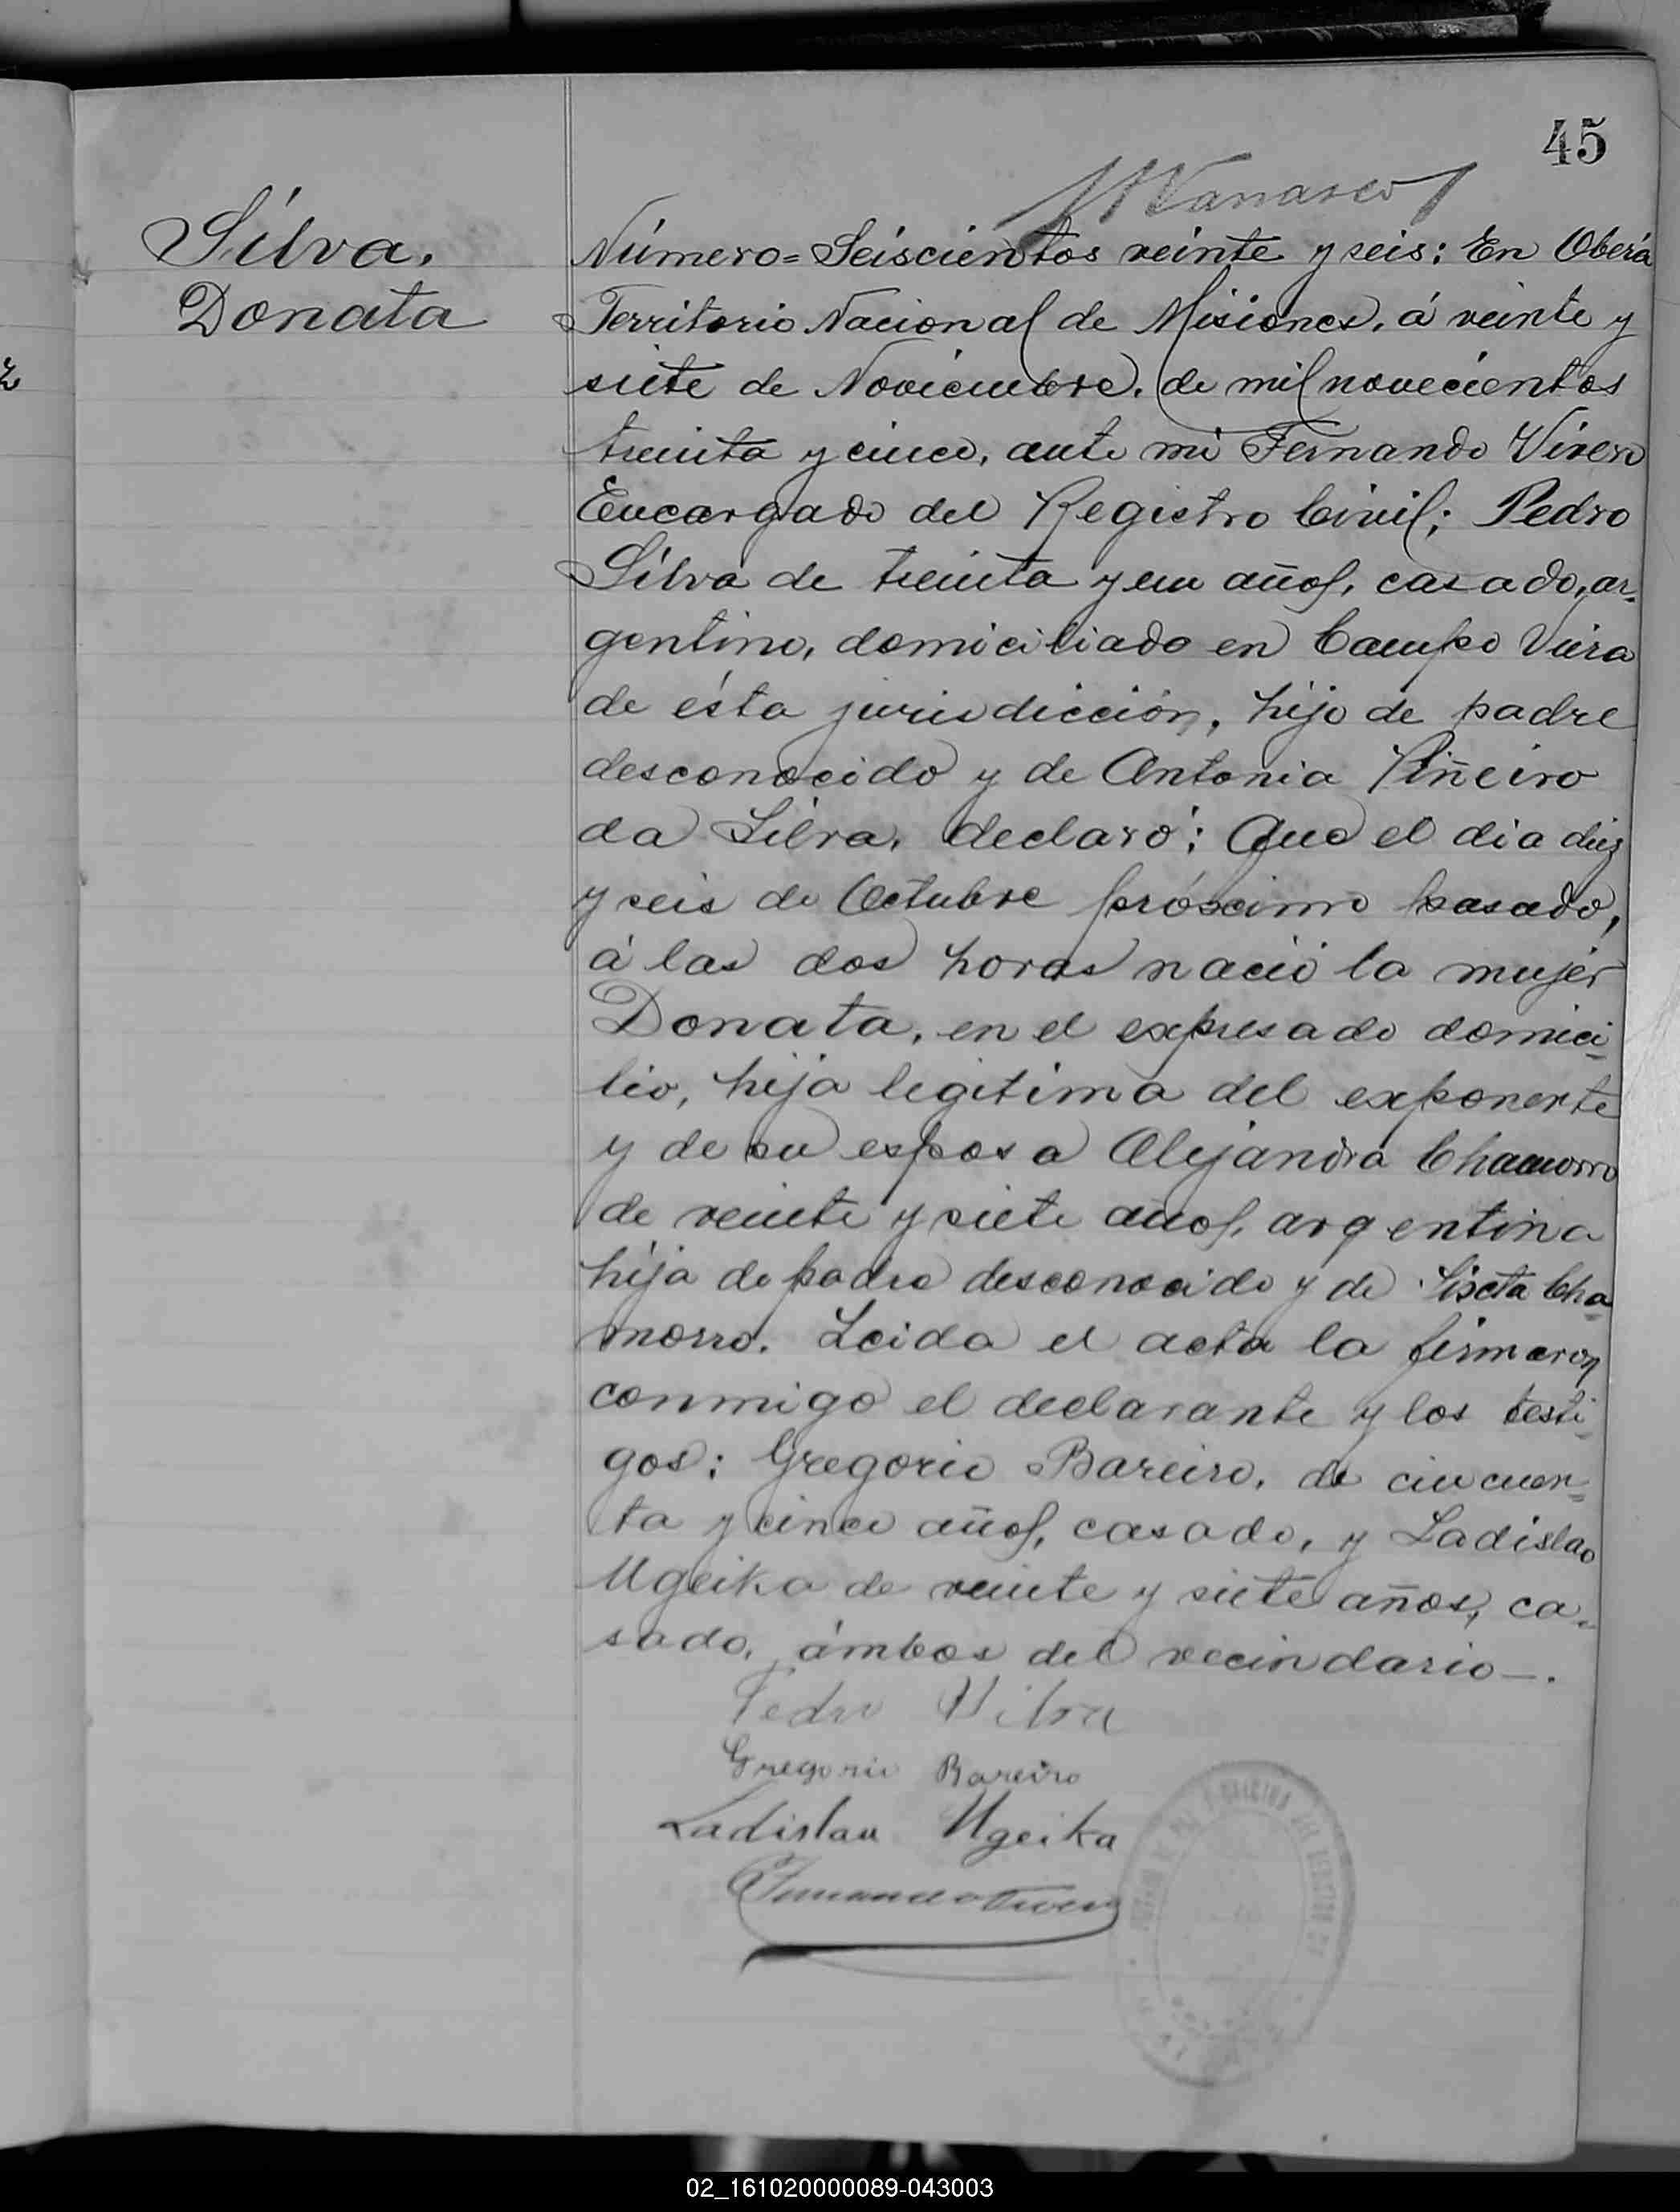 45
Silva,
Donata
Número= Seiscientos veinte y seis: En Oberá
Territorio Nacional de Misiones, á veinte y
siete de Noviembre, de mil novecientos
treinta y cinco, ante mi Fernando Vivero
Encargado del Registro Civil; Pedro
Silva de treinta y un años, casado, ar-
gentino, domiciliado en Campo Viera
de ésta jurisdicción, hijo de padre
desconocido y de Antonia Piñeiro
da Silva, declaró: Que el dia diez
y seis de Octubre próximo pasado,
á las dos horas nació la mujer
Donata, en el expresado domici-
lio, hija legitima del exponente
y de su esposa Alejandra Chamorro
de veinte y siete años, argentina
hija de padre desconocido y de Cha-
morro. Leida el acta la firmaron
conmigo el declarante y los testi-
gos: Gregorio Bareiro, de cincuen-
ta y cinco años, casado, y Ladislao
Ugeika de veinte y siete años, ca-
sado, ámbos del vecindario—.
Pedro Silva
Gregorio Bareiro
Ladislau Ugeika
02_161020000089-043003